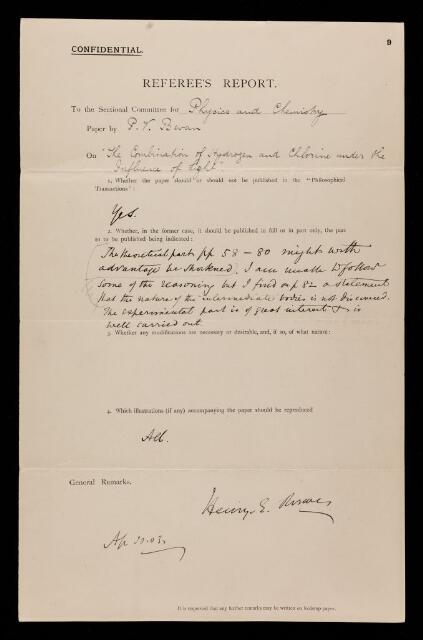 9
CONFIDENTIAL.
REFEREE'S REPORT.
To the Sectional Committee for Physics and Chemistry
Paper by P. V. Bevan
On "The Combination of Hydrogen and Chlorine under the
Influence of Light".
1. Whether the paper should or should not be published in the "Philosophical
Transactions":
Yes.
2. Whether, in the former case, it should be published in full or in part only, the part
so to be published being indicated:
The theoretical part pp 58 – 80 might with
advantage be shortened. I am unable to follow
some of the reasoning but I find on p 82 a statement
that the nature of the intermediate bodies is not discussed.
The experimental part is of great interest & is
well carried out.
3. Whether any modifications are necessary or desirable, and, if so, of what nature:
4. Which illustrations (if any) accompanying the paper should be reproduced
All.
General Remarks.
Henry E.
Ap .03.
It is requested that any further remarks may be written on foolscap paper.